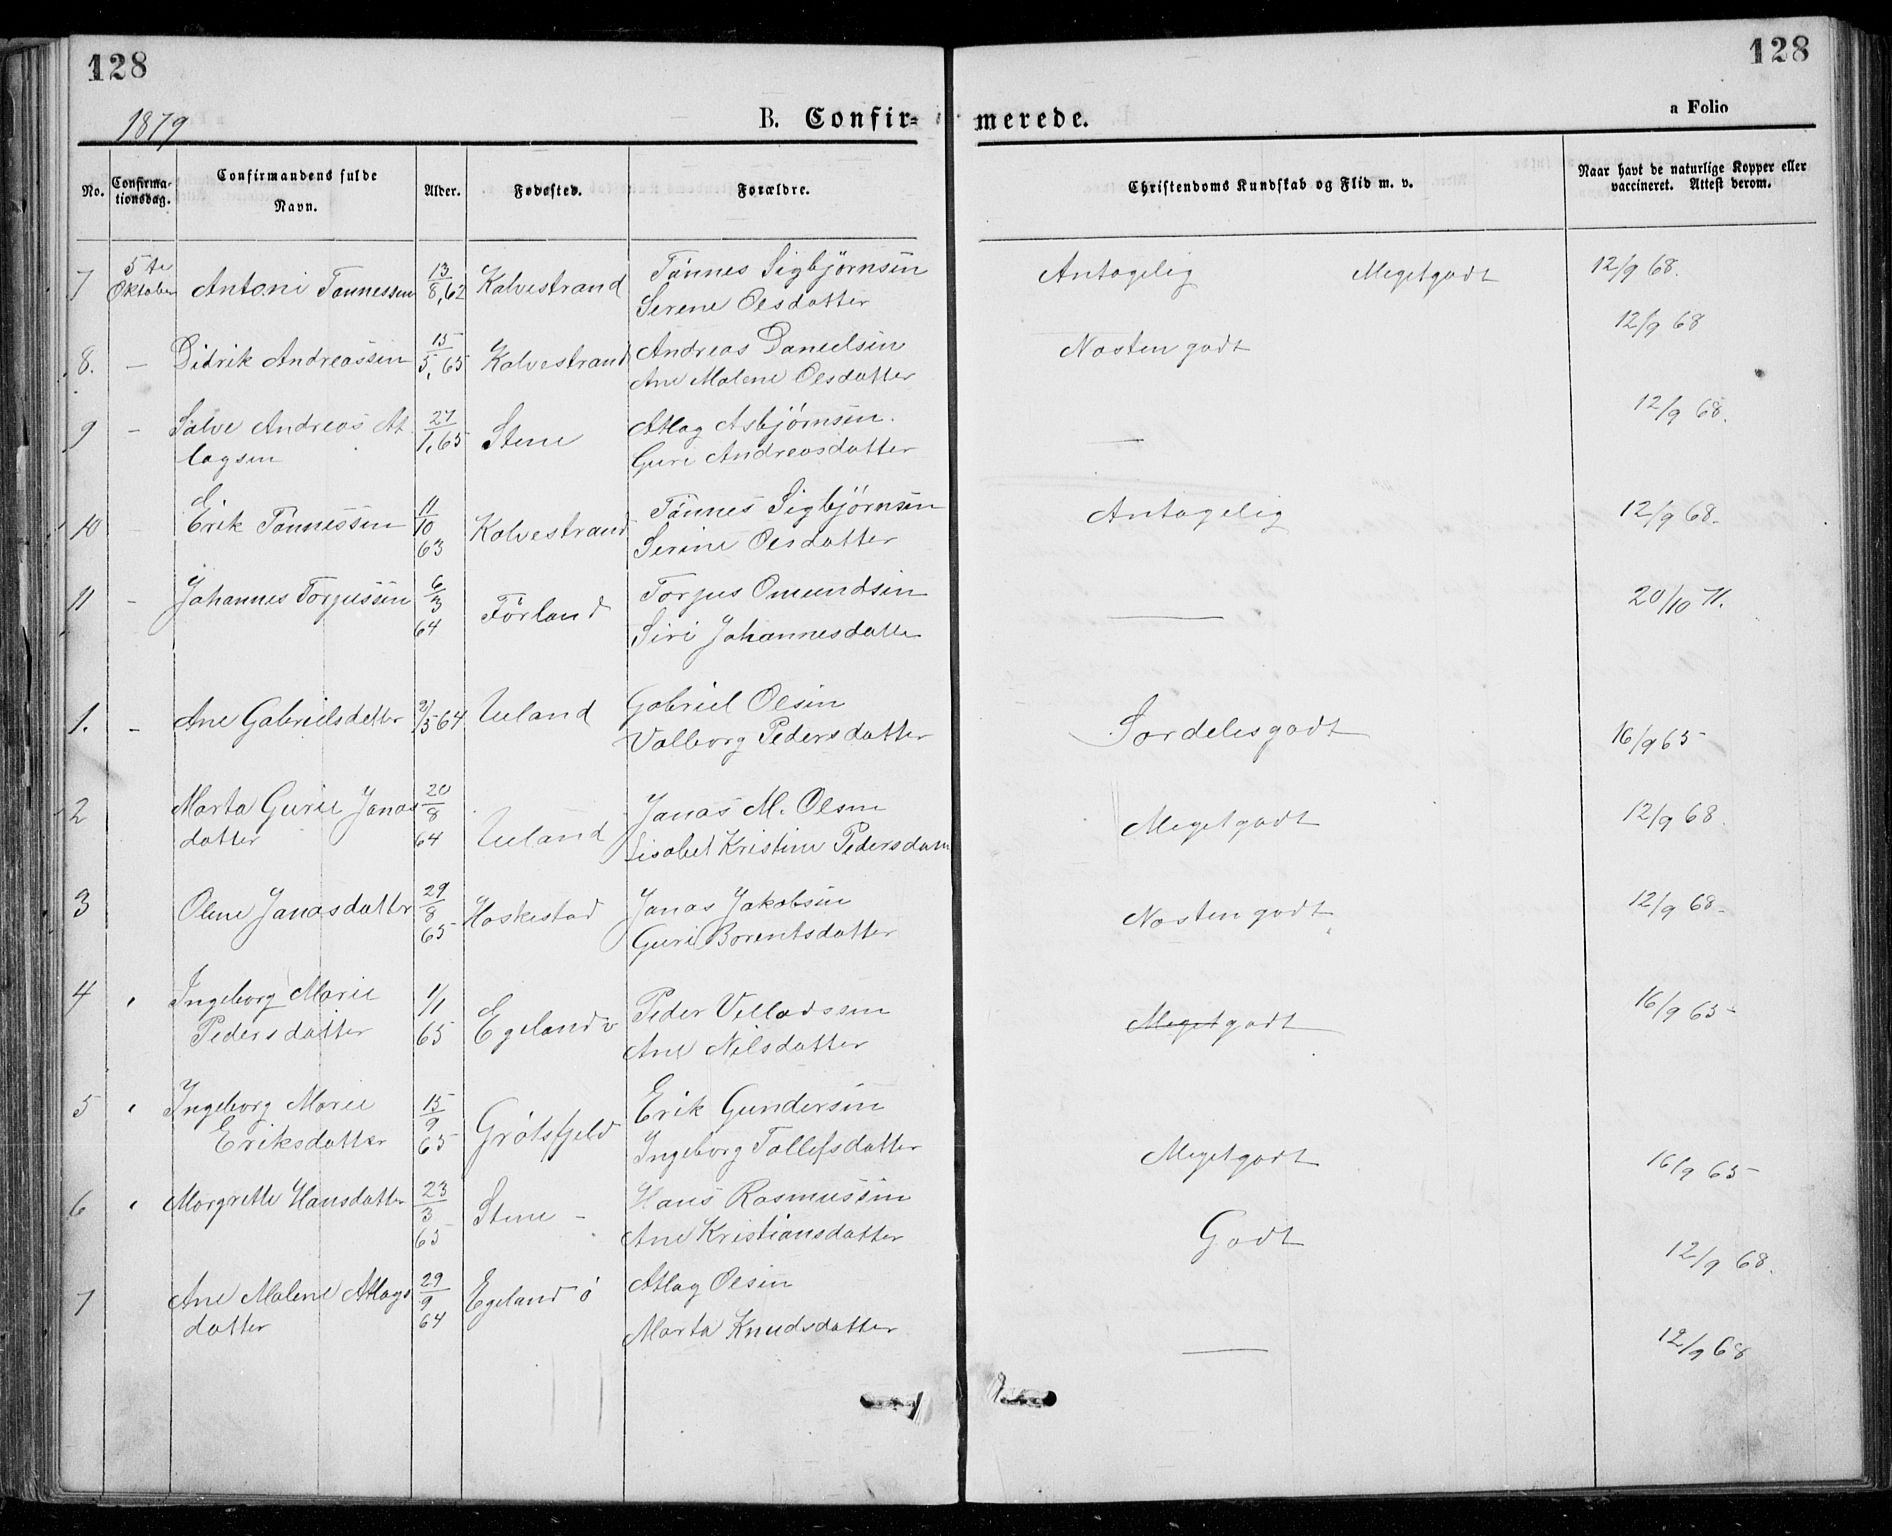 128
128
1879
B. Confir- merede.
a Folio
No.
Confirma-
tionsdag.
Confirmandens fulde
Navn.
Alder.
Fødested.
Forældre.
Christendoms Kundskab og Flid m. v.
Naar havt de naturlige Kopper eller
vaccineret. Attest derom.
7 5te Oktober Antoni Tønnessen 13/8, 62 Kalvestrand Tønnes Sigbjørnsen Antagelig Megetgodt 12/9 68.
Serene Olsdatter
8. – Didrik Andreassen 15/5, 65 Kalvestrand Andreas Danielsen Næsten godt 12/9 68
Ane Malene Olsdatter
9 – Salve Andreas At 27/1, 65 Stene Atlag Asbjørnsen. — 12/9 68.
lagsen Guri Andreasdatter
10 – Erik Tønnessen 11/10 63 Kalvestrand Tønnes Sigbjørnsen Antagelig 12/9 68.
Serine Olsdatter
11 – Johannes Torjussen 6/3 64 Førland Torjus Omundsen — 20/10 71.
Siri Johannesdatte
1. – Ane Gabrielsdatter 2/5 64 Ueland Gabriel Olsen Særdelesgodt 16/9 65
Valborg Pedersdatter
2 Marta Gurie Jonas 20/8 64 Ueland Jonas M. Olsen Megetgodt 12/9 68.
datter Lisabet Kristine Pedersdatte
3 Olene Jonasdatter 29/8 65 Haskestad Jonas Jakobsen Næsten godt 12/9 68
Guri Borentsdatter
4 " Ingeborg Marie 1/1 65 Egeland v Peder Villadssen Meget godt 16/9 65
Pedersdatter Ane Nilsdatter
5 " Ingeborg Marie 15/9 65 Grøtsfjeld Erik Gundersen Megetgodt 16/9 65
Eriksdatter Ingeborg Tollefsdatter
6 " Margrette Hansdatter 23/3 65 Stene – Hans Rasmussen Godt 12/9 68.
Ane Kristiansdatter
7 Ane Malene Atlags 29/9 64 Egeland ø Atlag Olsen — 12/9 68
datter Marta Knudsdatter